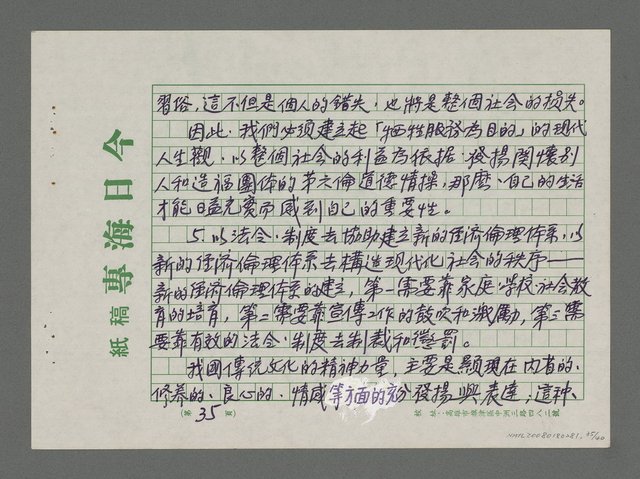 習俗，這不但是個人的錯失，也將是整個社会的损失。
因此，我們必須建立起「牺牲服務為目的」的現代
人生觀，以整個社会的利益為依据，發揚関懷别
人和造福團体的第六倫道德情操，那麽，自己的生活
才能日益充實而感到自己的重要性。
5.以法令、制度去協助建立新的経済倫理体系，以
新的経済倫理体系去構造現代化社会的秩序——
新的経済倫理体系的建立，第一需要靠家庭、學校、社会教
育的培育，第二需要靠宣傳工作的鼓吹和激勵，第三需
要靠有效的法令、制度去制裁和懲罰。
我國傳統文化的精神力量，主要是顯現在内省的、
修养的、良心的、情感等方面的充分發揚與表達，這种、
今日海專
稿紙
（第35頁）
校址：高雄市旗津區中洲三路四八二號
NMTL20080180281, 35/40